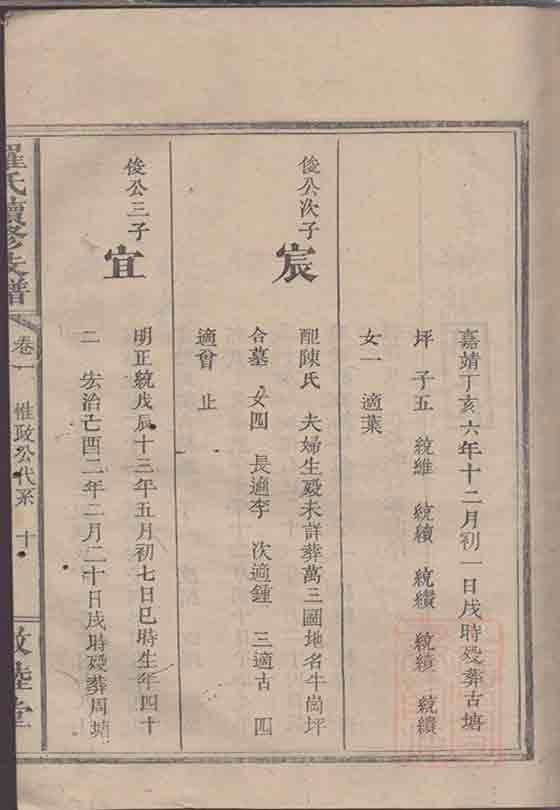 嘉靖丁亥六年十二月初一日戌時殁葬古塘
坪 子五 統維 統續 統纘 統績 統纉
女一 適葉
俊公次子 宸
配陳氏 夫婦生殁未詳葬萬三圖地名牛崗坪
合墓 女四 長適李 次適鍾 三適古 四
適曾 止
俊公三子 宜
明正統戊辰十三年五月初七日巳時生年四十
二 宏治己酉二年二月二十日戌時殁葬周塘
羅氏續修支譜 卷一 惟政公代系 十 敦睦堂